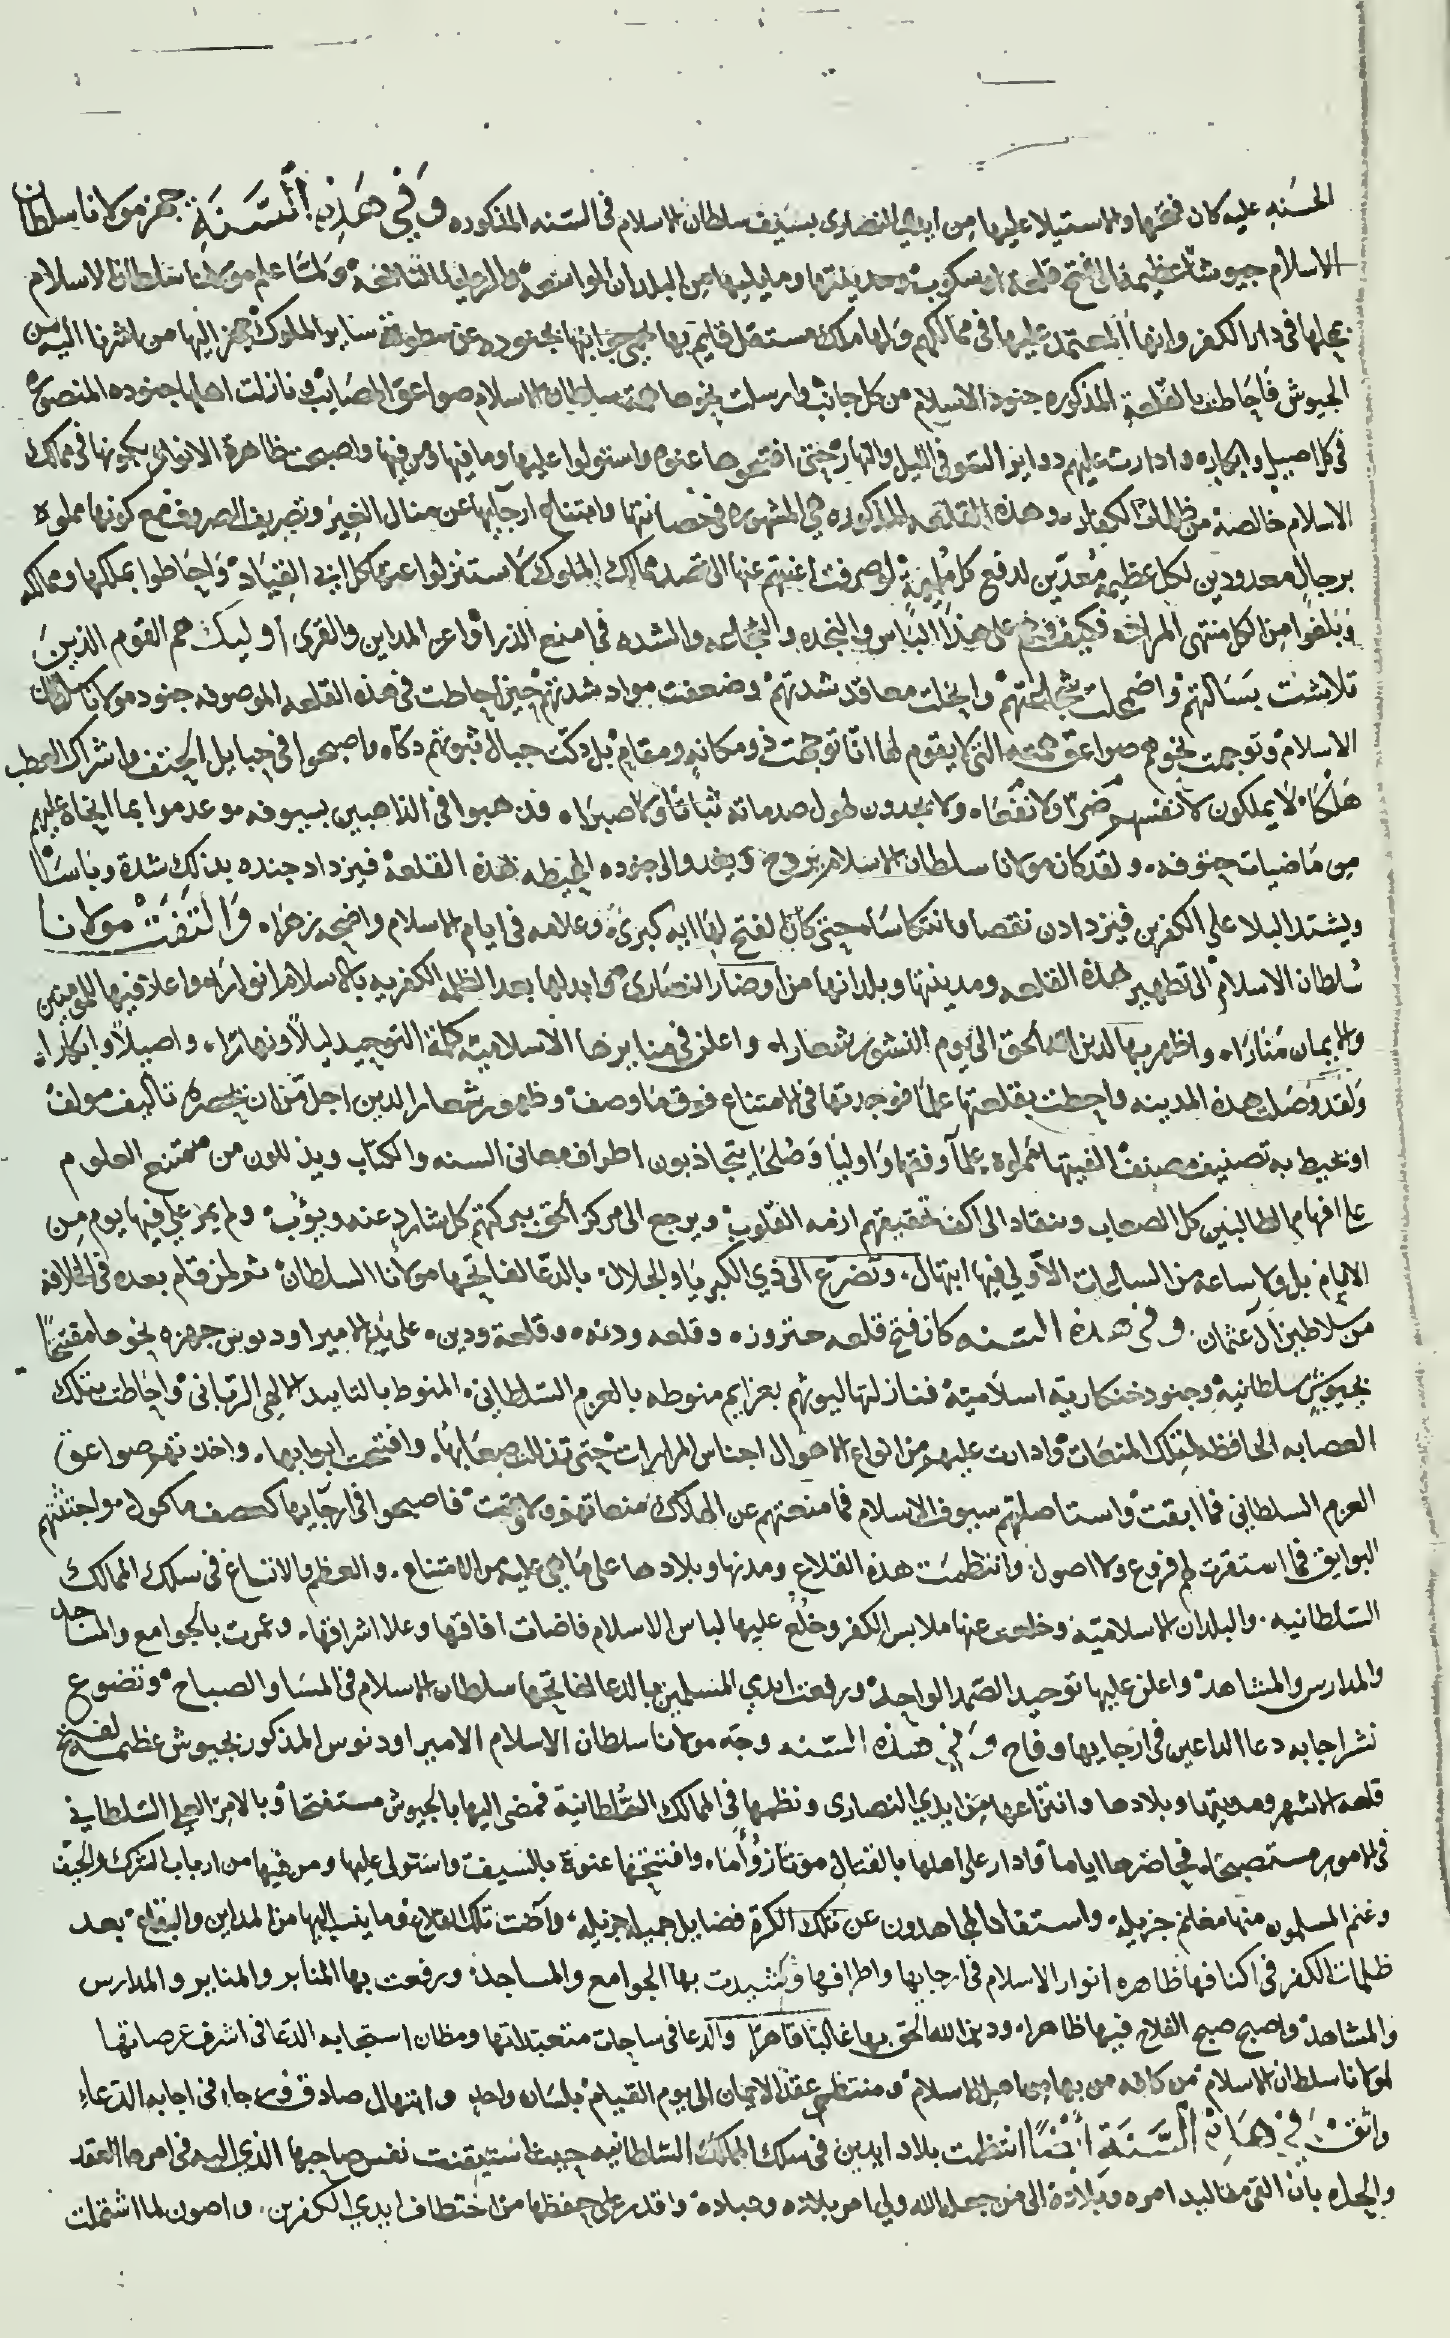 الحسنه عليه كان فتحها والاستيلا عليها من ايدي النصارى بسيف سلطان الاسلام فى السنه المذكوره وَفِي هَذِهِ السَّنَةِ جهز مولانا سلطان
الاسلام جيوشا عظيمه الى فتح قلعة اوسكوب ومدينتها وما يليها من البلدان الواسعه والارجا الشاسعه ولما علم مولانا سلطان الاسلام
بمحلها فى دار الكفر وانها المعتمد عليها فى ممالكهم ولها ملك مستقل قايم بها يحمي جوانبها بجنوده عن سطوة ساير الملوك جهز اليها من اشرنا اليه من
الجيوش فاحاطت بالقلعة المذكوره جنود الاسلام من كل جانب وارسلت نحوها همة سلطان الاسلام صواعق المصايب ونازلت اهلها جنوده المنصورة
فى كل اصيل وابكاره وادارت عليهم دواير السوء فى الليل والنهار حتى افتتحوها عنوه واستولوا عليها وما فيها ومن فيها واصبحت ظاهرة الانوار بكونها فى ممالك
الاسلام خالصة من ظلمات الكفاره وهذه القلعه المذكوره هي المشهوره فى حصانتها وامتناع ارجايها عن منال الغير وتصريف الصروف مع كونها مملوة
برجال معدودين لكل عظيمه معدين لدفع كل ملمة لو صرفت اعنتهم عنها الى قصد ممالك الملوك لاستنزلوا عن كل ابي القياد واحاطوا بملكها وممالكه
وبلغوا من الكل منتهى المراد فكيف هم على هذا الباس والنجده والشجاعه والشده فى امنع الذرا واعز المداين والقرى اوليك هم القوم الذين
تلاشت بسالتهم واضمحلت شجاعتهم وانحلت معاقد شدتهم وضعفت مواد شدتهم حين احاطت فى هذه القلعه الموصوفه جنود مولانا سلطان
الاسلام وتوجهت نحوهم صواعق همته التى لا يقوم لها انا توجهت ذو مكانه ومقام بل دكت جبال ثبوتهم دكاه واصبحوا فى حبايل الحتف واشراك العطب
هلكاه لا يملكون لانفسهم ضرا ولا نفعاه ولا يجدون لهول صدماته ثباتا ولا صبراه فذهبوا فى الذاهبين بسيوفه وعدموا بما انحاه عليهم
من ماضيات حتوفه ولقد كان مولانا سلطان الاسلام يروح ويغدو الى جنوده المحيطه بهذه القلعة فيزداد جنده بذلك شدة وباسا
ويشتد البلا على الكفرين فيزدادن نقصا وانتكاساه حتى كان الفتح لها ايه كبرى وعلامه فى ايام الاسلام واضحه زهراه وَالتَفَتَ مولانا
سلطان الاسلام الى تطهير هذه القلعه ومدينتها وبلدانها من اوضار النصارى وابدلها بعد الظلمه الكفريه بالاسلام انواراه واعلا فيها للمومنين
والايمان مناراه واظهر بها لدين الله الحق الى يوم النشور شعاراه واعلن فى منابرها الاسلامية كلمة التوحيد ليلا ونهاراه واصيلا وابكاراه
ولقد وصلت هذه المدينه واحطت بقلعتها علما فوجدتها فى الامتناع فوق ما وصف وظهور شعار الدين اجل من ان يحصره تاليف مولف
او يحيط به تصنيف مصنف الفيتها مملوة علما وفقها واوليا وصلحا يتجاذبون اطراف معانى السنه والكتاب ويذللون من ممتنع العلوم
على افهام الطالبين كل الصعاب وينقاد الى اكف تحقيقهم ازمه القلوب ويرجع الى مركز الحق ببركتهم كل شارد عنه ويؤب ولم يمر علي فيها يوم من
الايام بل ولا ساعه من الساعات الا ولي فيها ابتهال وتضرع الى ذي الكبريا والجلال بالدعا لفاتحها مولانا السلطان ثم لمن قام بعده فى الخلافة
من سلاطين ال عثمان وفي هذه السنه كان فتح قلعه حتروزه وقلعه ودنه وقلعة ودين على يد الامير اودنوس جهزه نحوها مفتتحا
بجيوش سلطانيه وجنود خنكارية اسلامية فنازلتها ليوثهم بعزايم منوطه بالعزم السلطاني المنوط بالتاييد الالهي الربانى واحاطت بتلك
العصابه الحافظه لتلك المنعات وادارت عليهم من انواع الاهوال اجناس المرارات حتى تذللت صعابها وافتتحت ابوابها واخذتهم صواعق
العزم السلطاني فما ابقت واستاصلتهم سيوف الاسلام فما منعتهم عن الهلاك منعاتهم ولا وقت فاصبحوا فى ارجايها كعصف ماكول واجتثتهم
البوايق فما استقرت لهم فروع ولا اصول وانتظمت هذه القلاع ومدنها وبلادها على ما هي عليه من الامتناع والعظم والاتساع فى سلك الممالك
السلطانيه والبلدان الاسلاميه وخلعت عنها ملابس الكفر وخلع عليها لباس الاسلام فاضات افاقها وعلا اشراقها وعمرت بالجوامع والمساجد
والمدارس والمشاهد واعلن عليها توحيد الصمد الواحد ورفعت ايدي المسلمين بالدعا لفاتحها سلطان الاسلام فى المسا والصباح وتضوع
نشر اجابه دعا الداعين فى ارجايها وفاح وَفِي هذه السنه وجه مولانا سلطان الاسلام الامير اودنوس المذكور بجيوش عظيمه لفتح
قلعه الاشهر ومدينتها وبلادها وانتزاعها من ايدي النصارى ونظمها فى الممالك السلطانية فمضى اليها بالجيوش مستفتحا وبالامر العلي السلطاني
فى الامور مستصبحاه فحاصرها اياما وادار على اهلها بالقتال موتا زؤاماه وافتتحها عنوة بالسيف واستولى عليها ومن فيها من ارباب الشرك والحيف
وغنم المسلمون منها مغانم جزيله واستفاد المجاهدون عن تلك الكرة فضايل جميله جزيله واضت تلك القلاع وما ينسب اليها من المداين والبقاع بعد
ظلمات الكفر فى اكنافها ظاهره انوار الاسلام فى ارجايها واطرافها وشيدت بها الجوامع والمساجد ورفعت بها المنابر والمنابر والمدارس
والمشاهد واصبح صبح الفلاح فيها ظاهراه ودين الله الحق بها غالبا قاهرا والدعا فى ساحات متعبداتها ومظان استجابه الدعا فى اشرف عرصاتها
لمولانا سلطان الاسلام من كافه من بها من اهل الاسلام ومنتظمي عقد الايمان الى يوم القيام بلسان واحد وابتهال صادق ورجاء فى اجابه الدعاء
واثق وَفِي هَذِهِ السَّنَةِ أيضًا انتظمت بلاد ايدين فى سلك الممالك السلطانيه حيث استيقنت نفس صاحبها الذي اليه فى امرها العقد
والحل بان القى مقاليد امره وبلاده الى من جعله الله ولي امر بلاده وعباده واقدر على حفظها من اختطاف ايدي الكفرين واصون لما اشتملت